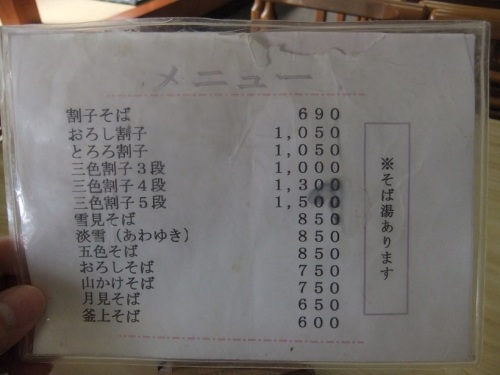 メニュー
割子そば 690
おろし割子 1,050
とろろ割子 1,050
三色割子3段 1,000
三色割子4段 1,300
三色割子5段 1,500
雪見そば 850
淡雪(あわゆき) 850
五色そば 850
おろしそば 750
山かけそば 750
月見そば 650
釜上そば 600
※そば湯あります